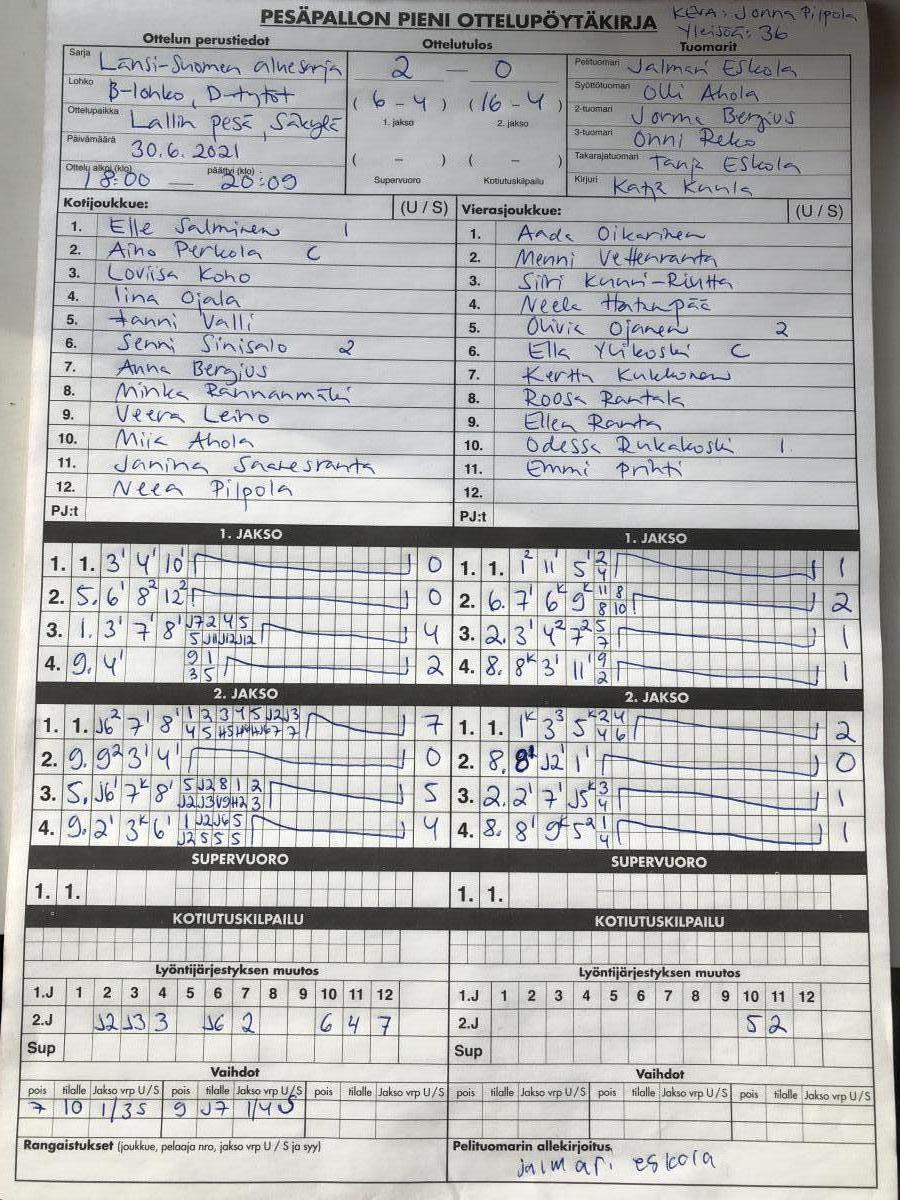 PESÄPALLON PIENI OTTELUPÖYTÄKIRJA
KEVA: Jonna Pilpola
Yleisöä: 36
Ottelun perustiedot
Ottelutulos
Tuomarit
Sarja Länsi-Suomen aluesarja
Lohko B-lohko, D-tytöt
Ottelupaikka Lallin pesä, Säkylä
Päivämäärä 30.6.2021
Ottelu alkoi (klo) päättyi (klo)
18:00 — 20:09
2 — 0
( 6 - 4 ) ( 16 - 4 )
1. jakso 2. jakso
( – ) ( – )
Supervuoro Kotiutuskilpailu
Pelituomari Jalmari Eskola
Syöttötuomari Olli Ahola
2-tuomari Jorma Bergius
3-tuomari Onni Reko
Takarajatuomari Tanja Eskola
Kirjuri Katja Kuula
Kotijoukkue: (U / S)
1. Elle Salminen 1
2. Aino Perkola C
3. Loviisa Koho
4. Iina Ojala
5. Hanni Valli
6. Senni Sinisalo 2
7. Anna Bergius
8. Minka Rannanmäki
9. Veera Leino
10. Miia Ahola
11. Janina Saaresranta
12. Neea Pilpola
PJ:t
Vierasjoukkue: (U / S)
1. Aada Oikarinen
2. Menni Vettenranta
3. Siiri Kunri-Riutta
4. Neela Hatanpää
5. Olivia Ojanen 2
6. Ella Ylikoski C
7. Kerttu Kukkonen
8. Roosa Rantala
9. Ellen Ranta
10. Odessa Rukakoski 1
11. Emmi Prihti
12.
PJ:t
1. JAKSO
1. 1. 3' 4' 10' 0
2. 5. 6' 8² 12² 0
3. 1. 3' 7' 8' J7 2 4 5 4
5 J11 J12 J12
4. 9. 4' 9 1 2
3 5
1. JAKSO
1. 1. 1² 11' 5' 2 1
4
2. 6. 7' 6ᴷ 9ᴷ 11 8 2
8 10
3. 2. 3' 4² 7² 5 1
7
4. 8. 8ᴷ 3' 11' 9 1
2
2. JAKSO
1. 1. J6² 7' 8' 1 2 3 4 5 J2 J3 7
2. 9. 9² 3' 4' 0
3. 5. J6' 7ᴷ 8' 5 J2 8 1 2 5
4. 9. 2' 3ᴷ 6' 1 J2 J6 5 4
J2 5 5 5
2. JAKSO
1. 1. 1ᴷ 3³ 5ᴷ 2 4 2
4 6
2. 8. 8' J2' 1' 0
3. 2. 2' 7' J5ᴷ 3 1
4
4. 8. 8' 9ᴷ 5² 1 1
4
SUPERVUORO
1. 1.
SUPERVUORO
1. 1.
KOTIUTUSKILPAILU
KOTIUTUSKILPAILU
Lyöntijärjestyksen muutos
1.J 1 2 3 4 5 6 7 8 9 10 11 12
2.J J2 J3 3 J6 2 6 4 7
Sup
Lyöntijärjestyksen muutos
1.J 1 2 3 4 5 6 7 8 9 10 11 12
2.J 5 2
Sup
Vaihdot
pois tilalle Jakso vrp U / S pois tilalle Jakso vrp U / S pois tilalle Jakso vrp U / S
7 10 1/3S 9 J7 1/4S
Vaihdot
pois tilalle Jakso vrp U / S pois tilalle Jakso vrp U / S pois tilalle Jakso vrp U / S
Rangaistukset (joukkue, pelaaja nro, jakso vrp U / S ja syy)
Pelituomarin allekirjoitus
jalmari eskola